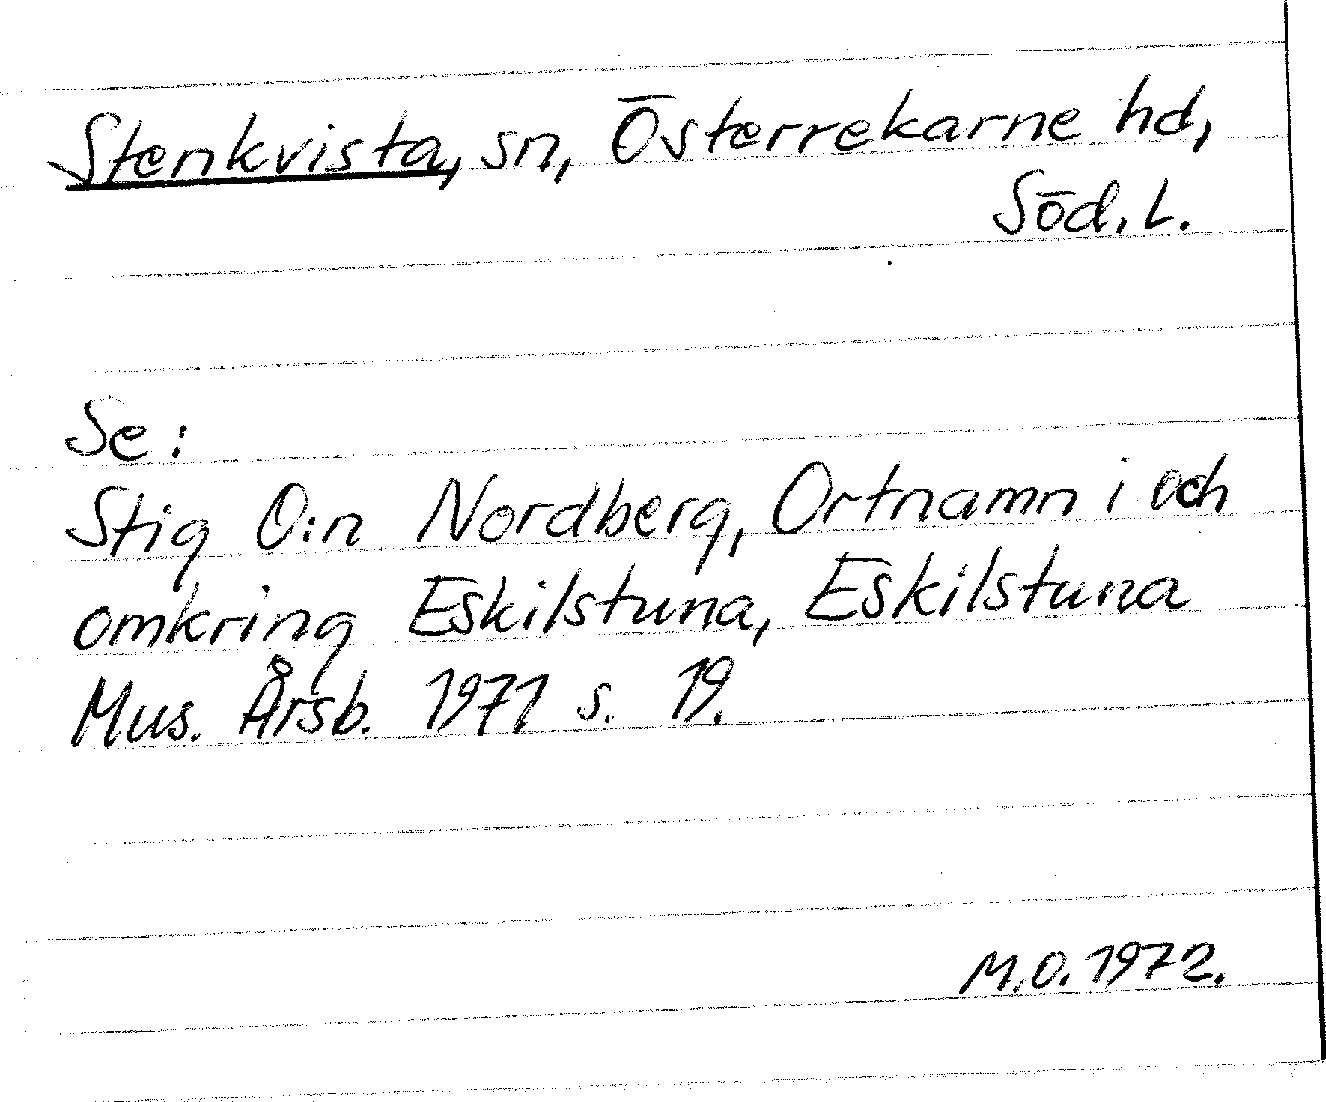 Stenkvista, sn, Österrekarne hd,
Söd. L.
Se:
Stig O:n Nordberg, Ortnamn i och
omkring Eskilstuna, Eskilstuna
Mus. Årsb. 1971 s. 19.
M.O. 1972.